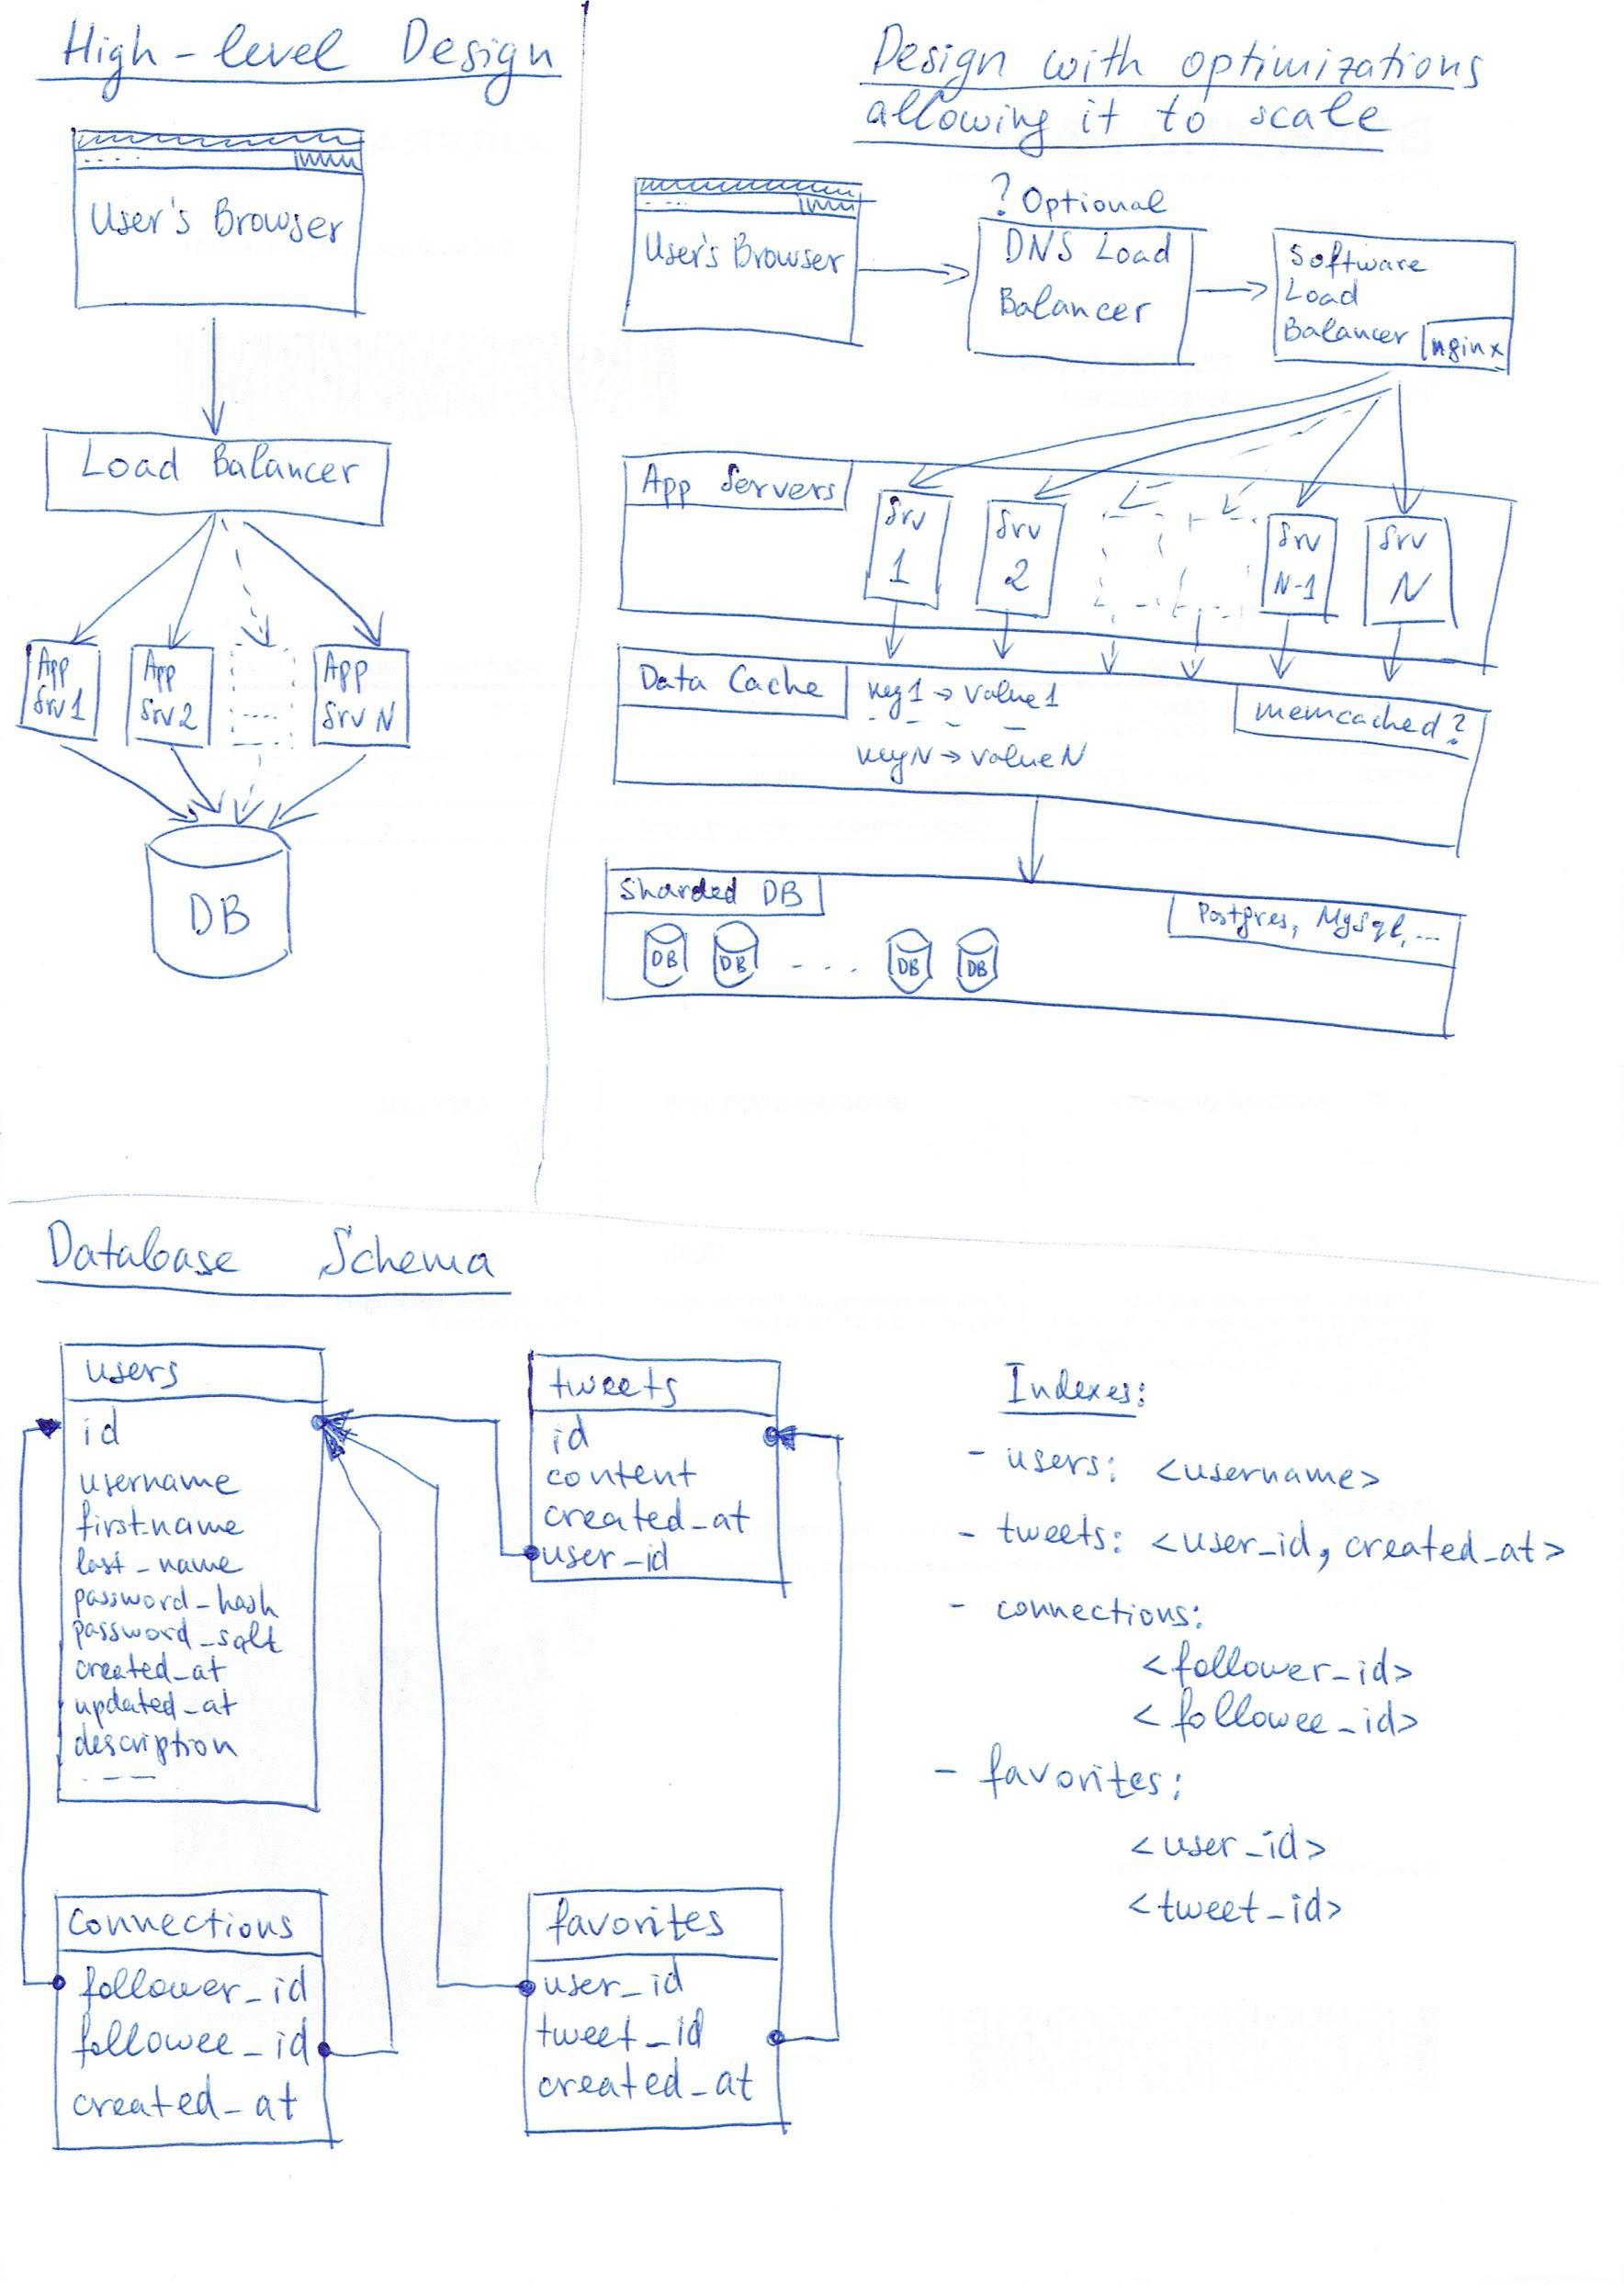 High-level Design
User's Browser
Load Balancer
App
Srv1
App
Srv2
....
App
Srv N
DB
Design with optimizations
allowing it to scale
User's Browser
? Optional
DNS Load
Balancer
Software
Load
Balancer
nginx
App Servers
Srv
1
Srv
2
Srv
N-1
Srv
N
Data Cache
key1 → value1
- - - -
keyN → valueN
memcached?
Sharded DB
Postgres, MySql, ...
DB
DB
. . . .
DB
DB
Database Schema
users
id
username
first_name
last_name
password_hash
password_salt
created_at
updated_at
description
----
tweets
id
content
created_at
user_id
connections
follower_id
followee_id
created_at
favorites
user_id
tweet_id
created_at
Indexes:
- users: <username>
- tweets: <user_id, created_at>
- connections:
<follower_id>
<followee_id>
- favorites:
<user_id>
<tweet_id>